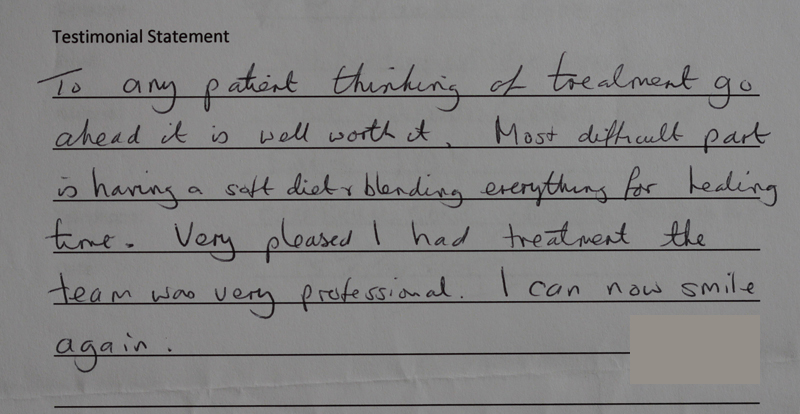 Testimonial Statement
To any patient thinking of treatment go
ahead it is well worth it. Most difficult part
is having a soft diet & blending everything for healing
time. Very pleased I had treatment the
team was very professional. I can now smile
again.